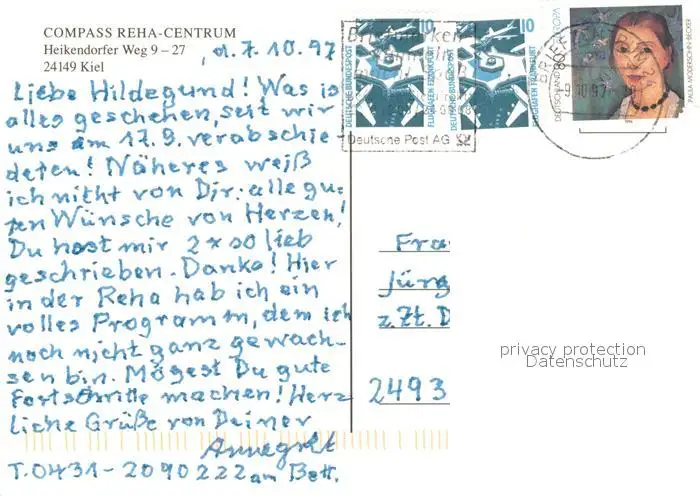 COMPASS REHA-CENTRUM
Heikendorfer Weg 9 – 27
24149 Kiel
d. 7. 10. 97
Liebe Hildegund! Was is
alles geschehen, seit wir
uns am 17. 9. verabschie-
deten! Näheres weiß
ich nicht von Dir: alle gu-
ten Wünsche von Herzen!
Du hast mir 2 x so lieb
geschrieben. Danke! Hier
in der Reha hab ich ein
volles Programm, dem ich
noch nicht ganz gewach-
sen bin. Mögest Du gute
Fortschritte machen! Herz
liche Grüße von Deiner
Annegret
T. 0431-2090222 am Bett.
10
DEUTSCHE BUNDESPOST
FLUGHAFEN FRANKFURT
10
DEUTSCHE BUNDESPOST
FLUGHAFEN FRANKFURT
Deutsche Post AG
DEUTSCHLAND
EUROPA
PAULA MODERSOHN-BECKER
Fra
Jürg
z.Zt. D
2493
privacy protection
Datenschutz